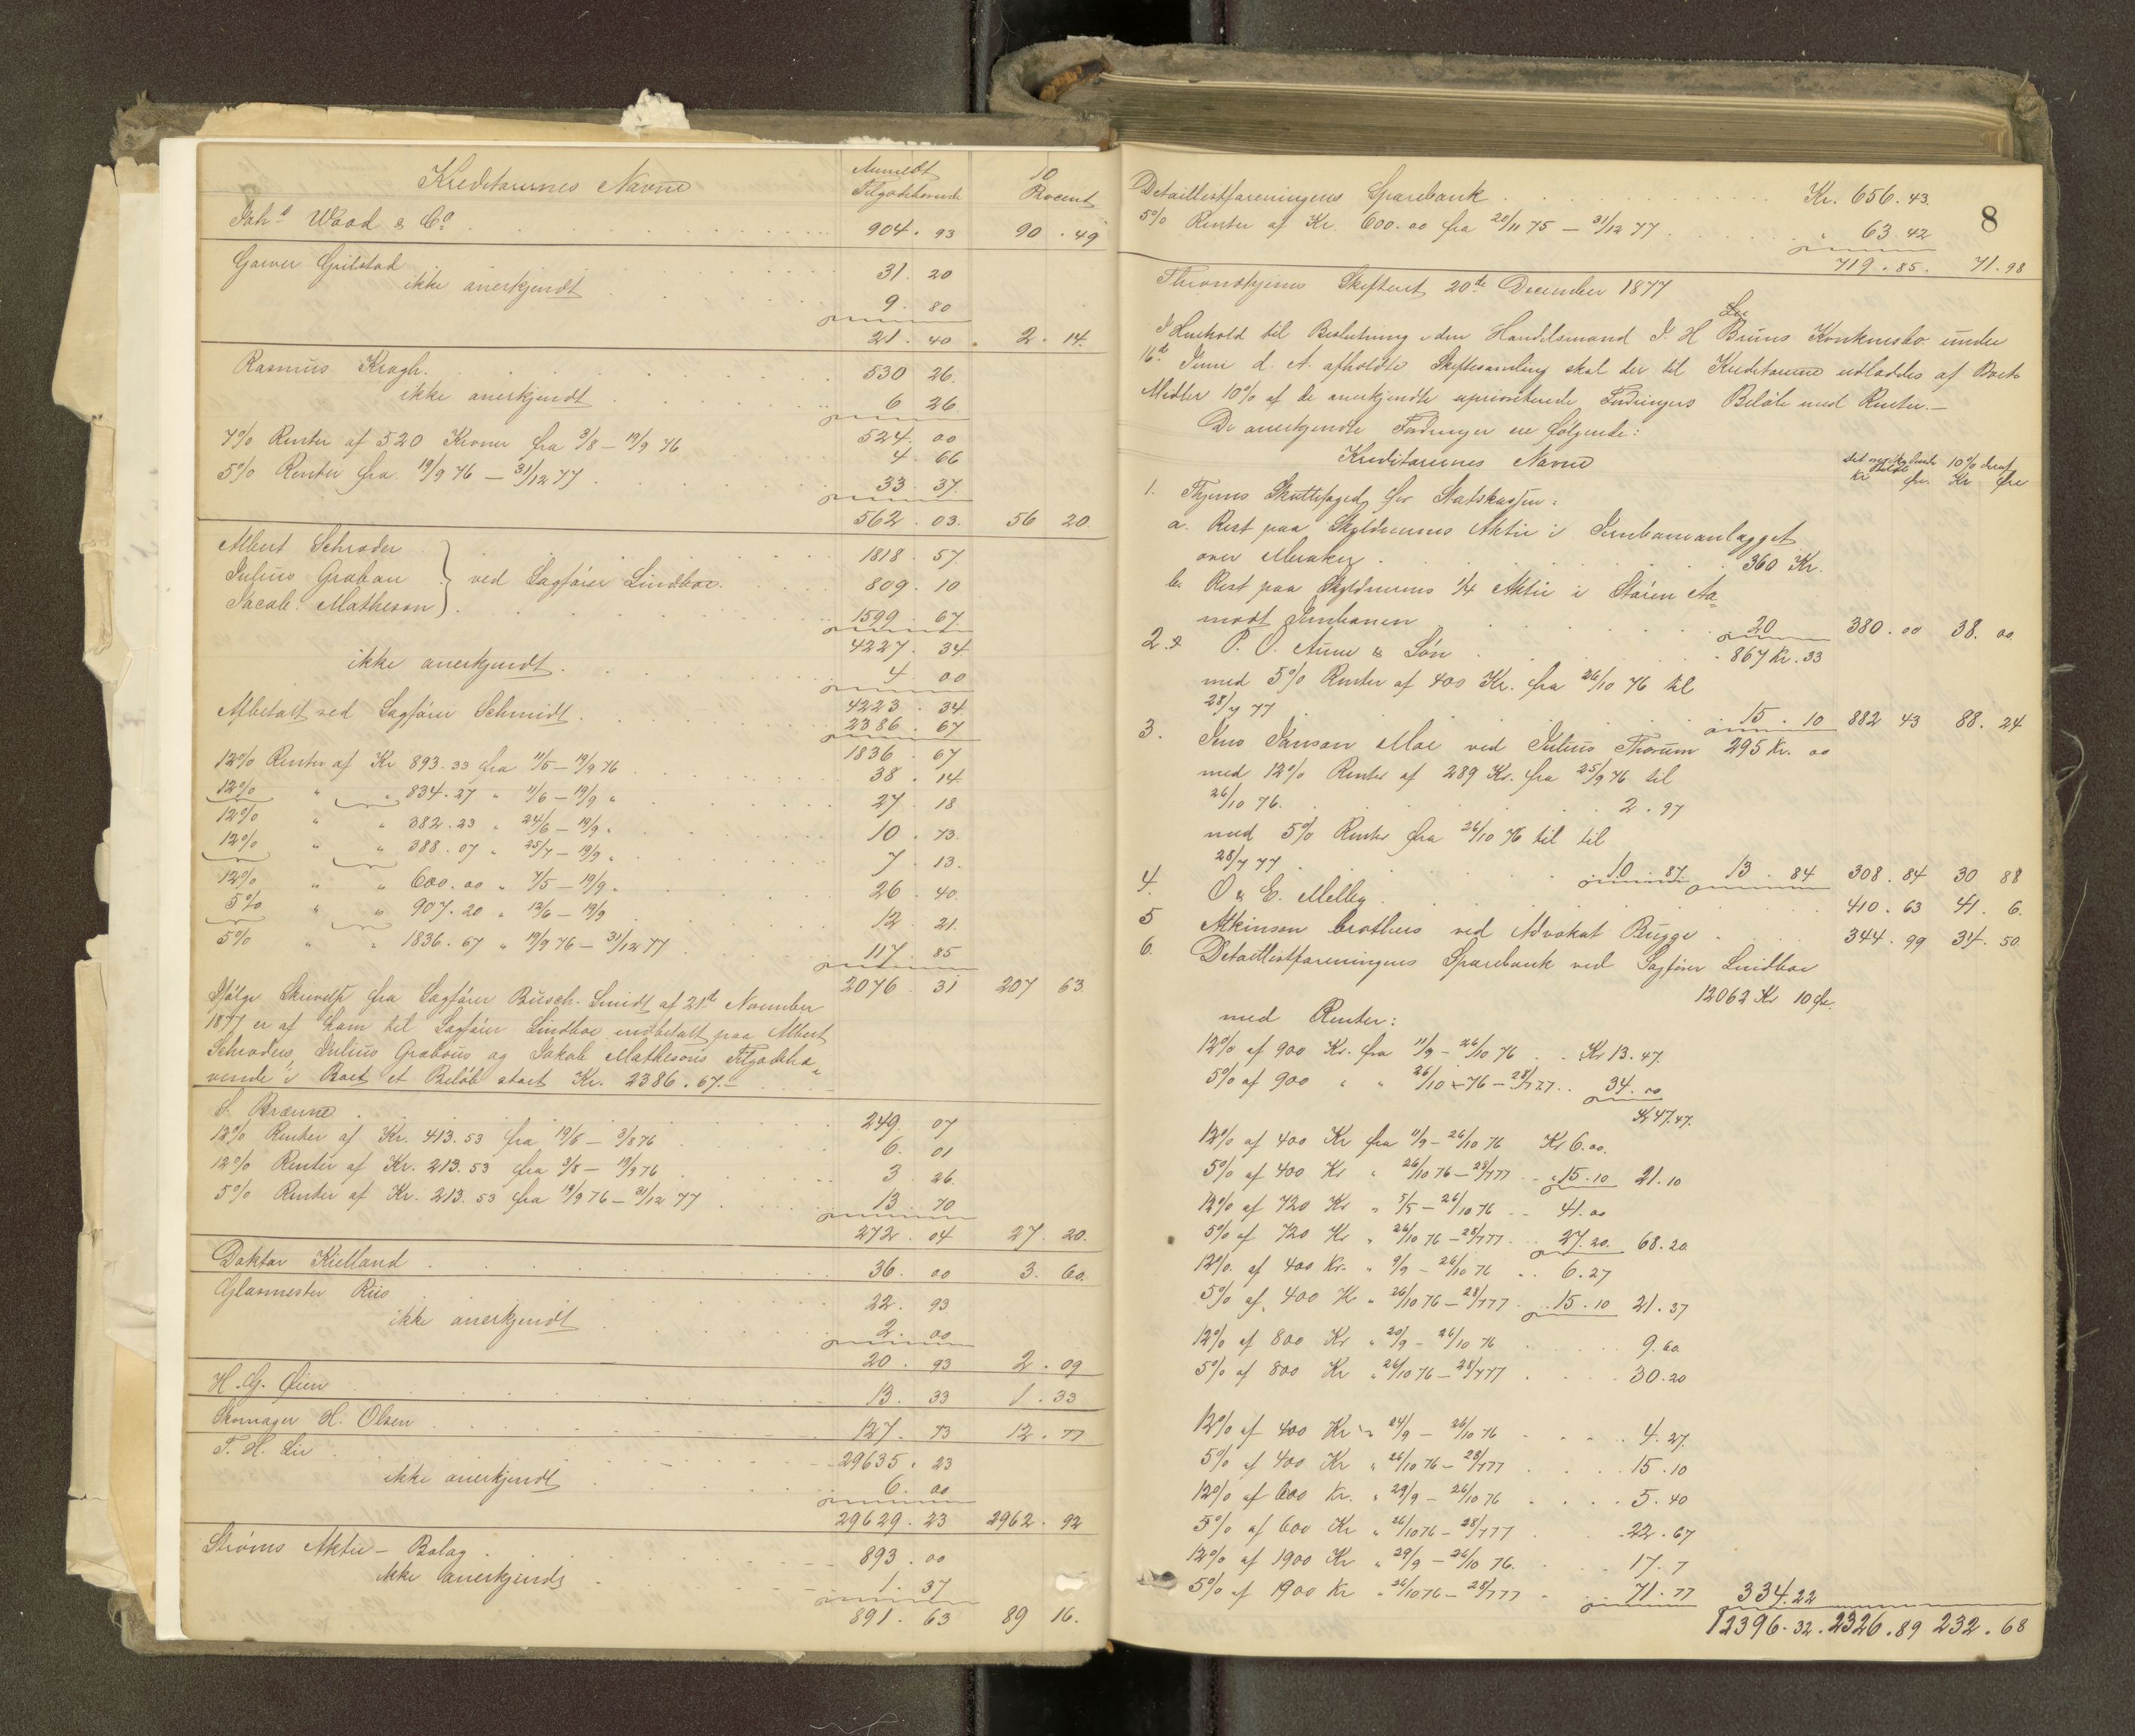 Kreditorernes Navne Anmeldt Tilgodehavende 10 Procent
Joh.s Wood & Co. 904. 93 90. 49
Garver Grilstad 31. 20
ikke anerkjendt 9. 80
21. 40. 2. 14.
Rasmus Krogh. 530 26.
ikke anerkjendt 6 26
524. 00
7% Renter af 520 Kroner fra 3/8 – 19/9 76 4. 66
5% Renter fra 19/9 76 – 31/12 77 33. 37.
562. 03. 56 20.
Albert Schrøder 1818. 57.
Julius Grabau } ved Sagfører Lindboe. 809. 10
Jacob Matheson 1599. 67.
4227. 34.
ikke anerkjendt. 4. 00
4223. 34.
Afbetalt ved Sagfører Schmidt. 2386. 67
1836. 67
12% Renter af Kr 893.33 fra 11/5 – 19/9 76 38. 14
12% " " 834.27 " 11/6 – 19/9 " 27. 18
12% " " 382.23 " 24/6 – 19/9 " 10. 73.
12% " " 388.07 " 25/7 – 19/9 " 7. 13.
12% " " 600.00 " 7/5 – 19/9 " 26. 40.
5% " " 907.20 " 12/6 – 19/9 12. 21.
5% " " 1836.67 " 19/9 76 – 31/12 77 117. 85
2076. 31 207 63.
Ifølge Skrivelse fra Sagfører Busch. Smidt af 21de November
1877 er af ham til Sagfører Lindboe indbetalt paa Albert
Schrøders, Julius Grabaus og Jakob Mathesons Tilgodeha-
vende i Boet et Beløb stort Kr. 2386.67.–
S. Brænne 249. 07
12% Renter af Kr. 413.53 fra 19/6 – 3/8 76 6. 01
12% Renter af Kr. 213.53 fra 3/8 – 19/9 76 3. 26.
5% Renter af Kr. 213.53 fra 19/9 76 – 31/12 77 13. 70
272. 04 27. 20.
Doktor Kielland 36. 00 3. 60.
Glasmester Riis 22. 93
ikke anerkjendt 2. 00
20. 93 2. 09
H. G. Øien 13. 33 1. 33
Skomager H. Olsen 127. 73 12. 77
T. H. Lie 29635. 23
ikke anerkjendt 6. 00
29629. 23 2962. 92
Strøms Aktie – Bolag 893. 00
ikke anerkjends 1. 37
891. 63 89 16.
8
Detaillistforeningens Sparebank Kr. 656.43.
5% Renter af Kr. 600.00 fra 20/11 75 – 31/12 77 " 63.42
719.85. 71.98
Throndhjems Skifteret 20de December 1877
Lie
I Henhold til Beslutning i den Handelsmand J. H Bruns Konkursbo under
16de Juni d. A. afholdte Skiftesamling skal der til Kreditorerne udloddes af Boets
Midler 10% af de anerkjendte uprioriterede Fordringers Beløb med Renter.–
De anerkjendte Fordringer ere følgende:
Kreditorernes Navne 10% deraf
Kr Øre. Kr Øre
1. Thjems Skattefoged for Statskassen:
a. Rest paa Skyldnerens Aktie i Jernbaneanlægget
over Meraker 360 Kr.
b. Rest paa Skyldnerens 1/4 Aktie i Støren Aa-
modt Jernbanen 20 380.00 38.00
2. P. O. Aune & Søn 867 Kr.33
med 5% Renter af 400 Kr. fra 26/10 76 til
28/7 77 15.10 882 43 88.24
3. Jens Janson Moe ved Julius Thorum 295 Kr. 00
med 12% Renter af 289 Kr. fra 25/9 76 til
26/10 76. 2.97
med 5% Renter fra 26/10 76 til til
28/7 77 10.87. 13.84 308.84 30 88
4. O & E. Melleby 410.63 41.6.
5 Atkinson brothers ved Advokat Bugge 344.99 34.50.
6. Detaillistforeningens Sparebank ved Sagfører Lindboe
12062 Kr 10 Øre.
med Renter:
12% af 900 Kr. fra 11/9 – 26/10 76 Kr 13.47.
5% af 900 " " 26/10 – 76 – 28/7 77 34.00
Kr 47.47.
12% af 400 Kr fra 11/9 – 26/10 76 Kr 6.00.
5% af 400 Kr " 26/10 76 – 28/7 77 " 15.10 21.10
12% af 720 Kr " 5/5 – 26/10 76 41.00
5% af 720 Kr " 26/10 76 – 28/7 77 27.20. 68.20.
12% af 400 Kr. " 9/9 – 26/10 76 6.27
5% af 400 Kr " 26/10 76 – 28/7 77 15.10 21.37
12% af 800 Kr " 20/9 – 26/10 76 9.60
5% af 800 Kr " 26/10 76 – 28/7 77 30.20
12% af 400 Kr " 24/9 – 26/10 76 4.27.
5% af 400 Kr " 26/10 76 – 28/7 77 15.10
12% af 600 Kr. " 29/9 – 26/10 76 5.40
5% af 600 Kr " 26/10 76 – 28/7 77 22.67
12% af 1900 Kr " 29/9 – 26/10 76. 17.7
5% af 1900 Kr " 26/10 76 – 28/7 77 71.77 334.22
12396.32. 2326.89 232.68